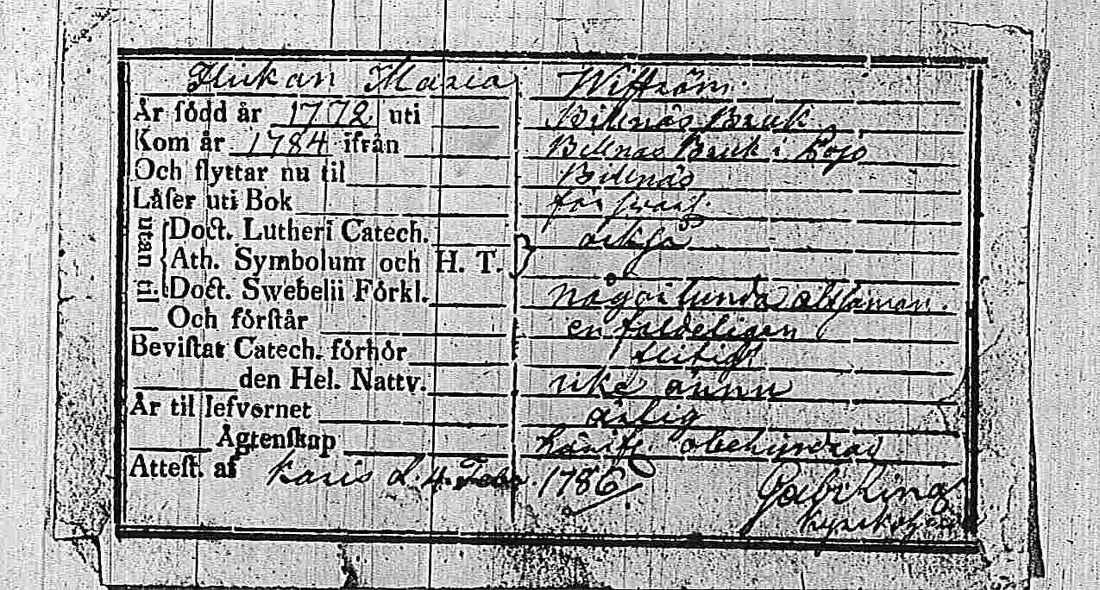 Pickan Maria Wiström.
Är född år 1772 uti Billnäs Bruk.
Kom år 1784 ifrån Billnäs Bruk i Pojo
Och flyttar nu til Billnäs
Läser uti Bok försvarl.
utan til
Doct. Lutheri Catech.
Ath. Symbolum och H. T.
Doct. Swebelii Förkl. någorlunda altsaman.
Och förstår enfaldeligen
Bevistat Catech. förhör flitigt
den Hel. Nattv. icke ännu
Är til lefvernet ärlig
Ägtenskap
Attest. af Karis d. 4 Febr. 1786